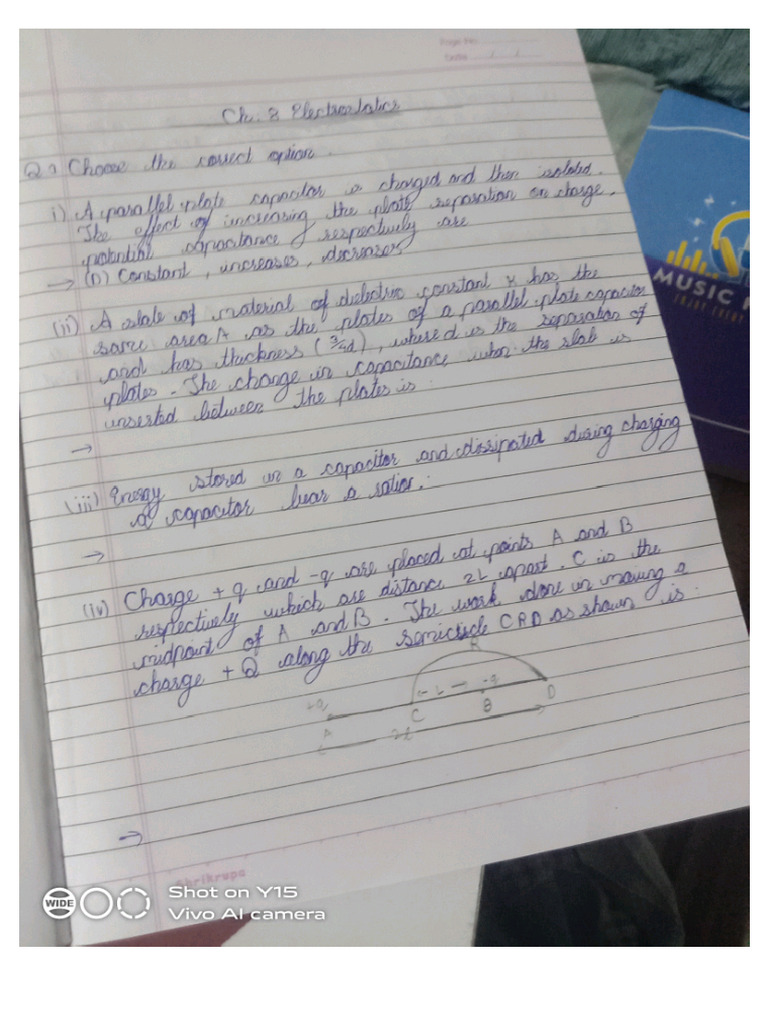 Page No.
Date / /
Ch. 8 Electrostatics
Q.1 Choose the correct option.
i) A parallel plate capacitor is charged and then isolated.
The effect of increasing the plate separation on charge,
potential capacitance respectively are
→ (D) Constant, increases, decreases
(ii) A slate of material of dielectric constant k has the
same area A as the plates of a parallel plate capacitor
and has thickness (3/4d), where d is the separation of
plates. The change in capacitance when the slab is
inserted between the plates is.
→
(iii) Energy stored in a capacitor and dissipated during charging
a capacitor bear a ratio.:
→
(iv) Charge +q and -q are placed at points A and B
respectively which are distance 2L apart. C is the
midpoint of A and B. The work done in moving a
charge + Q along the semicircle CRD as shown is.
R
L -q
A C B D
2L
→
Shrikrupa
WIDE
Shot on Y15
Vivo AI camera
MUSIC
ENJOY EVERY